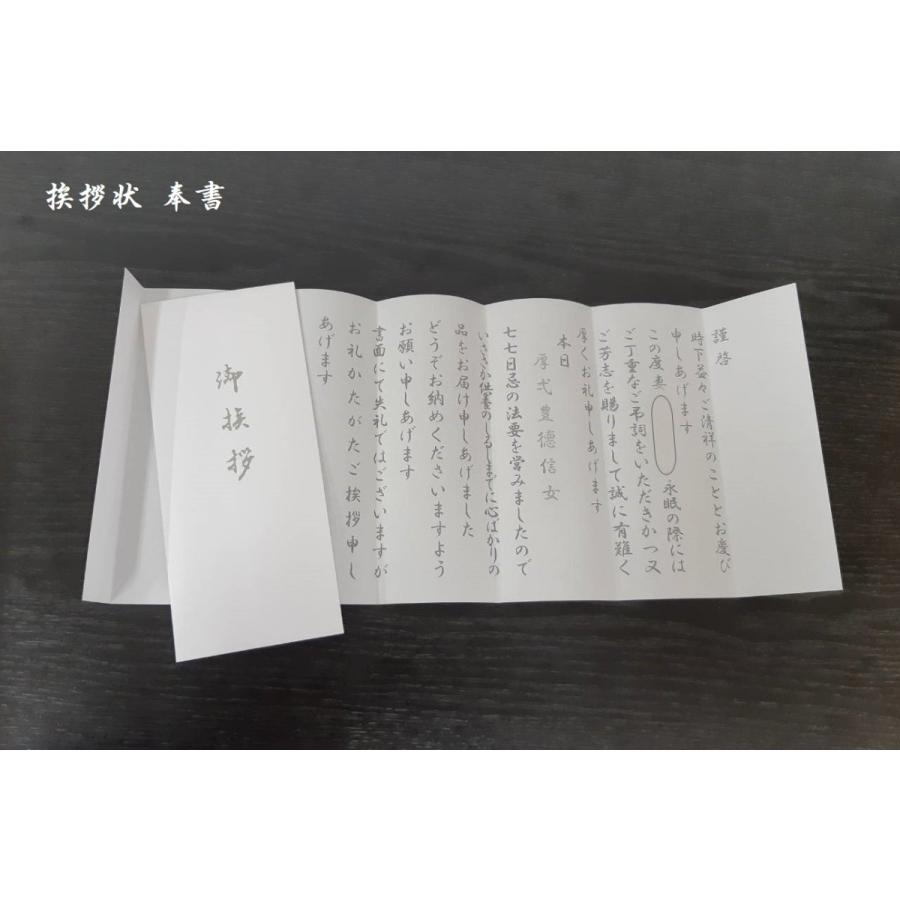 挨拶状 奉書
御挨拶
謹啓
時下益々ご清祥のこととお慶び
申しあげます
この度妻 永眠の際には
ご丁重なご弔詞をいただきかつ又
ご芳志を賜りまして誠に有難く
厚くお礼申しあげます
本日
厚弌豊德信女
七七日忌の法要を営みましたので
いささか供養のしるしまでに心ばかりの
品をお届け申しあげました
どうぞお納めくださいますよう
お願い申しあげます
書面にて失礼ではございますが
お礼かたがたご挨拶申し
あげます